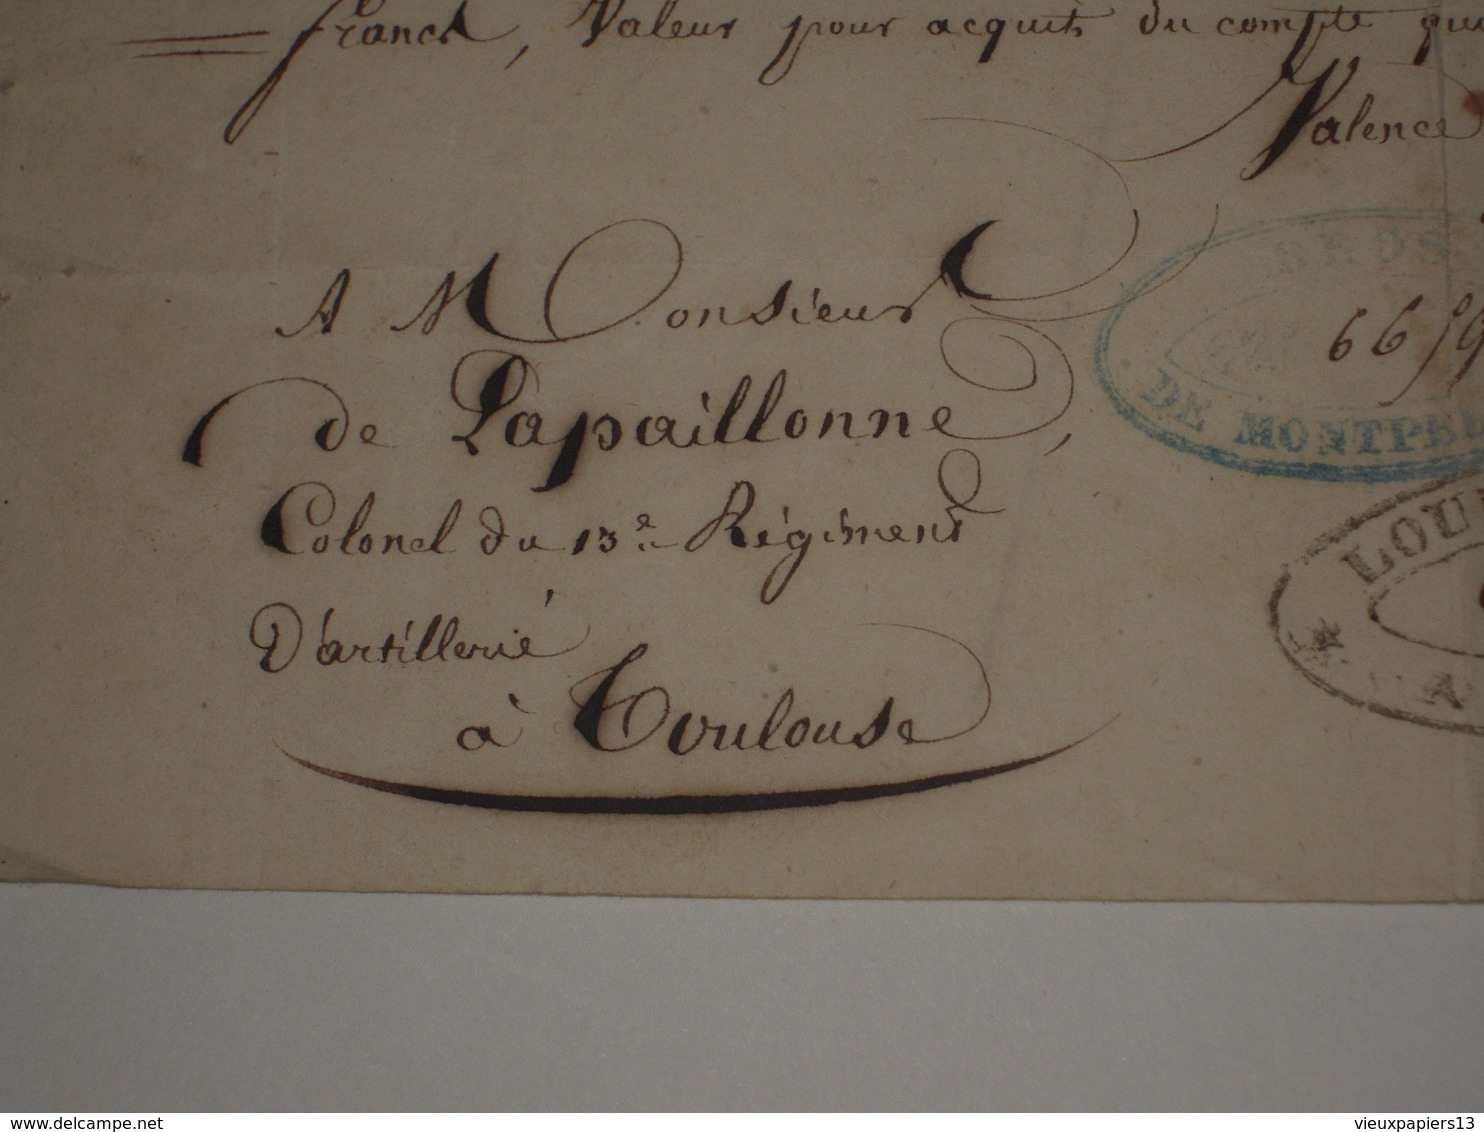 francs, Valeur pour acquit du compte
Valence
A Monsieur
de Lapaillonne,
Colonel du 13e Régiment
D'artillerie
à Toulouse
6659
DE MONTPEL
LOU
vieuxpapiers13